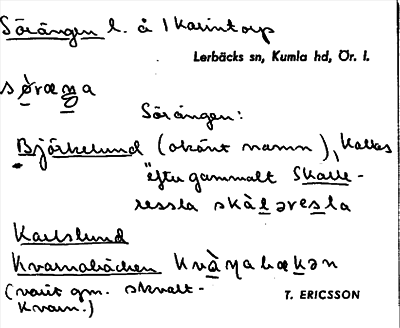 Sörängen l. å 1 Karintorp
Lerbäcks sn, Kumla hd, Ör. l.
Sörängen:
Björkelund (okänt namn), kallas
"efter gammalt Skalle-
ressla
Karlslund
Kvarnabäcken
(varit gm. skvalt-
kvarn.)
T. ERICSSON